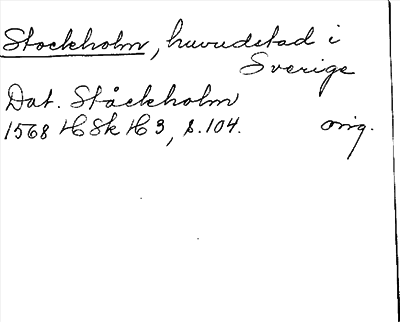 Stockholm, huvudstad i
Sverige
Dat. Ståckholm
1568 HSk H3, s. 104. orig.